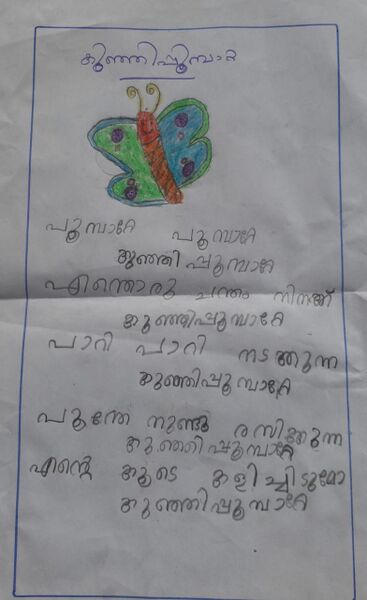 കുഞ്ഞിപ്പൂമ്പാറ്റ
പൂമ്പാറ്റേ പൂമ്പാറ്റേ
കുഞ്ഞിപ്പൂമ്പാറ്റേ
എന്തൊരു ചന്തം നിനക്ക്
കുഞ്ഞിപ്പൂമ്പാറ്റേ
പാറി പാറി നടക്കുന്ന
കുഞ്ഞിപ്പൂമ്പാറ്റേ
പൂന്തേ നുണ്ടു രസിക്കുന്ന
കുഞ്ഞിപ്പൂമ്പാറ്റേ
എന്റെ കൂടെ കളിച്ചിടുമോ
കുഞ്ഞിപ്പൂമ്പാറ്റേ